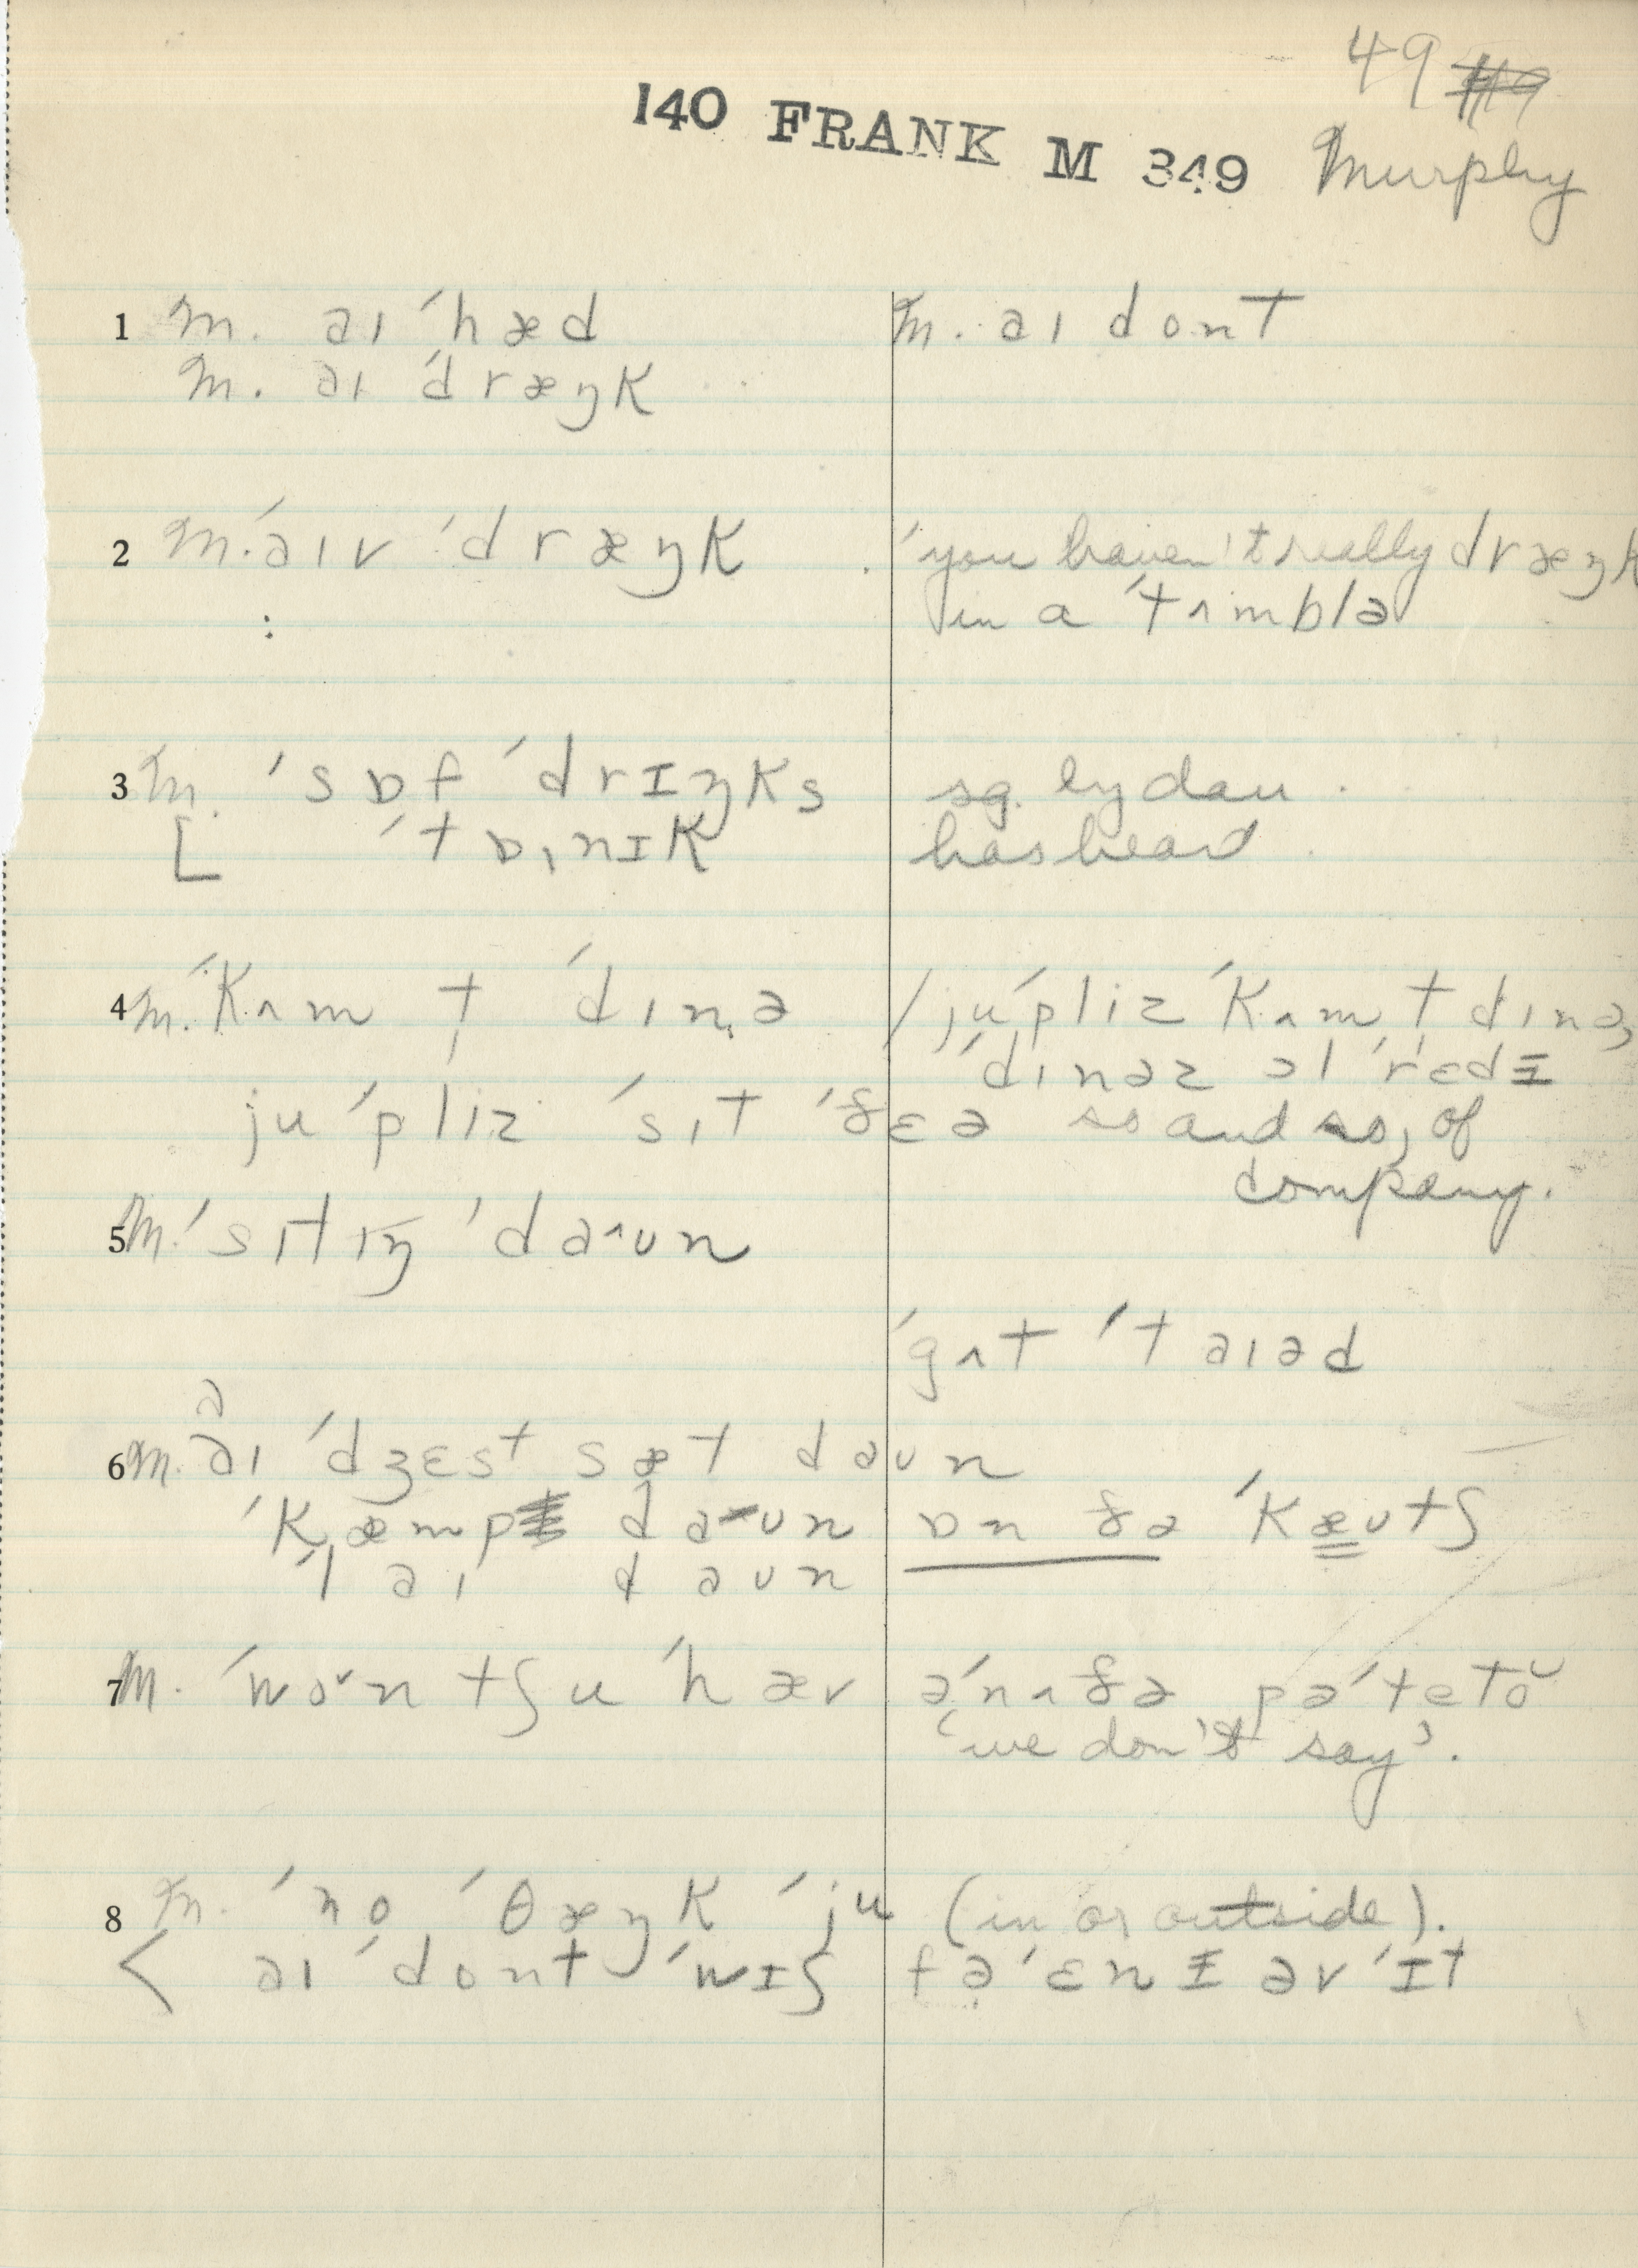 49
140 FRANK M 349 Murphy
1 M. aɪ ˈhæd M. aɪ dont
M. aɪ ˈdræŋk
2 M. ˈaɪv ˈdræŋk ˈyou haven't really dræŋk
: in a ˈtʌmblə
3 M. ˈsɒf ˈdrɪŋks sg. by dau
[ ˈtɒnɪk has heard
4 M. ˈkʌm t̩ ˈdɪnə / ju ˈpliz ˈkʌm t̩ dɪnə,
ˈdɪnəz ɔl ˈrɛdɪ
ju ˈpliz ˈsɪt ˈðɛə so and so, of
company.
5 M. ˈsɪtɪŋ ˈdaʌʊn
ˈgʌt ˈtaɪəd
ə
6 M. aɪ ˈdʒɛst sæt daʊn
ˈkæmp daʊn ɒn ðə ˈkæʊtʃ
ˈlaɪ daʊn
7 M. ˈwoˇntʃu ˈhæv əˈnʌðə pəˈtetoˇ
'we don't say'.
8 M. ˈno ˈθæŋk ˈju (in or outside).
< aɪ ˈdont ˈwɪʃ fəˈɛnɪ əv ˈɪt